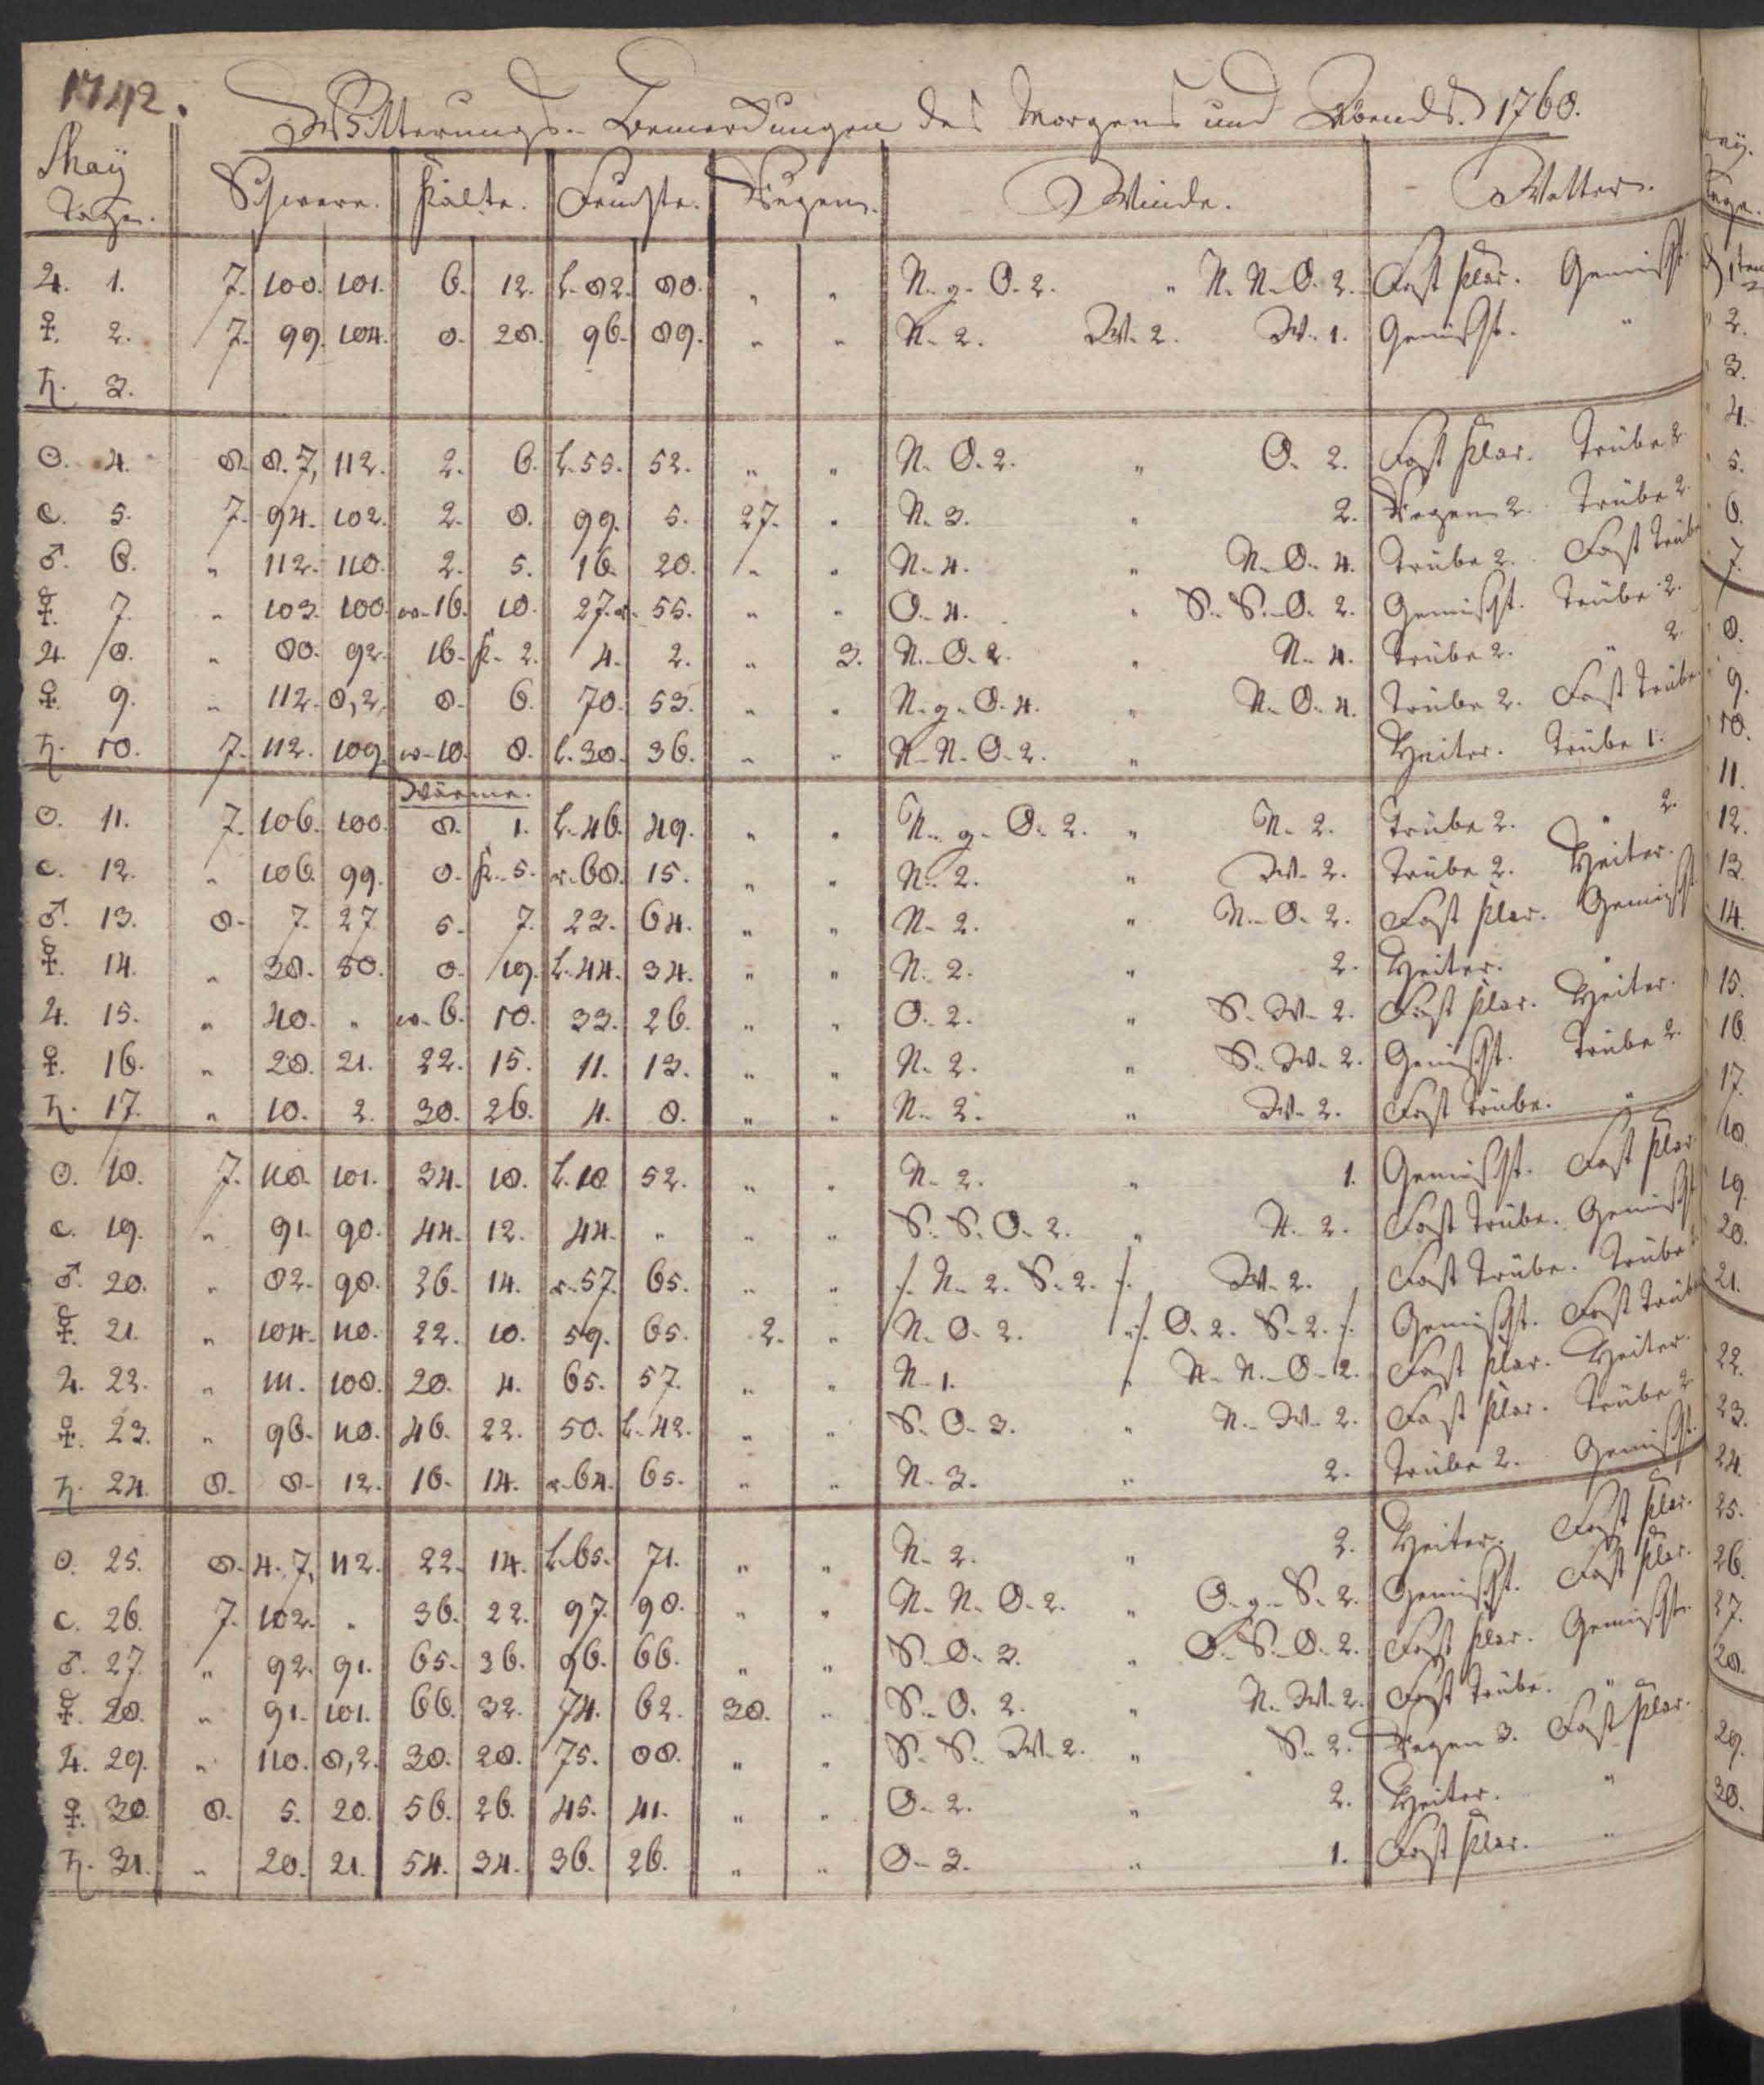 1742.
Witterungs-Bemerckungen des Morgens und Abends. 1760.
Maÿ Tage. Schwere. Kälte. Feuchte. Regen. Winde. Wetter.
♃. 1. 7. 100. 101. 6. 12. L. 82. 80. „ „ N. g. O. 2. „ N. N. O. 2. Fast klar. Gemischt.
♀. 2. 7. 99. 104. 8. 28. 96. 89. „ „ N. 2. W. 2. W. 1. Gemischt. „
♄. 3.
☉. 4. 8. 8. 7, 112. 2. 6. L. 55. 52. „ „ N. O. 2. „ O. 2. Fast klar. Trübe 2.
☾. 5. 7. 94. 102. 2. 8. 99. 5. 27. „ N. 3. „ 2. Regen 2. Trübe 2.
♂. 6. „ 112. 110. 2. 5. 16. 20. „ „ N. 4. „ N. O. 4. Trübe 2. Fast Trübe
☿. 7. „ 103. 100. w. 16. 10. 27. r. 55. „ „ O. 4. „ S. S. O. 2. Gemischt. Trübe 2.
♃. 8. „ 80. 92. 16. k. 2. 4. 2. „ 3. N. O. 2. „ N. 4. Trübe 2. „ 2.
♀. 9. „ 112. 8, 2, 8. 6. 70. 53. „ „ N. g. O. 4. „ N. O. 4. Trübe 2. Fast Trübe.
♄. 10. 7. 112. 109. w. 10. 8. L. 38. 36. „ „ N. N. O. 2. „ Heiter. Trübe 1.
Wärme.
☉. 11. 7. 106. 100. 8. 1. L. 46. 49. „ „ N. g. O. 2. „ N. 2. Trübe 2. „ 2.
☾. 12. „ 106. 99. 0. k. 5. r. 68. 15. „ „ N. 2. „ W. 2. Trübe 2. Heiter.
♂. 13. 8. 7. 27. 5. 7. 23. 64. „ „ N. 2. „ N. O. 2. Fast klar. Gemischt
☿. 14. „ 38. 50. 0. 19. L. 44. 34. „ „ N. 2. „ 2. Heiter. „
♃. 15. „ 40. „ w. 6. 10. 33. 26. „ „ O. 2. „ S. W. 2. Fast klar. Heiter.
♀. 16. „ 28. 21. 22. 15. 11. 13. „ „ N. 2. „ S. W. 2. Gemischt. Trübe 2.
♄. 17. „ 10. 2. 30. 26. 4. 8. „ „ N. 2. „ W. 2. Fast Trübe. „
☉. 18. 7. 110. 101. 34. 18. L. 18. 52. „ „ N. 2. „ 1. Gemischt. Fast klar
☾. 19. „ 91. 90. 44. 12. 44. „ „ „ S. S. O. 2. „ N. 2. Fast Trübe. Gemischt
♂. 20. „ 82. 98. 36. 14. r. 57. 65. „ „ /. N. 2. S. 2. /. W. 2. Fast Trübe. Trübe
☿. 21. „ 104. 110. 22. 10. 59. 65. 2. „ N. O. 2. „ /. O. 2. S. 2. /. Gemischt. Fast Trübe
♃. 22. „ 111. 108. 20. 4. 65. 57. „ „ N. 1. „ N. N. O. 2. Fast klar. Heiter.
♀. 23. „ 96. 110. 46. 22. 50. L. 42. „ „ S. O. 3. „ N. W. 2. Fast klar. Trübe 2
♄. 24. 8. 8. 12. 16. 14. r. 64. 65. „ „ N. 3. „ 2. Trübe 2. Gemischt.
☉. 25. 8. 4. 7, 112. 22. 14. L. 65. 71. „ „ N. 2. „ 2. Heiter. Fast klar.
☾. 26. 7. 102. „ 36. 22. 97. 98. „ „ N. N. O. 2. „ O. g. S. 2. Gemischt. Fast klar.
♂. 27. „ 92. 91. 65. 36. 96. 66. „ „ S. O. 3. „ O. S. O. 2. Fast klar. Gemischt.
☿. 28. „ 91. 101. 66. 32. 74. 62. 30. „ S. O. 2. „ N. W. 2. Fast Trübe. „
♃. 29. „ 110. 8, 2. 38. 28. 75. 88. „ „ S. S. W. 2. „ S. 2. Regen 3. Fast klar.
♀. 30. 8. 5. 20. 56. 26. 45. 41. „ „ O. 2. „ 2. Heiter. „
♄. 31. „ 20. 21. 54. 34. 36. 26. „ „ O. 3. „ 1. Fast klar. „
2.
3.
4.
5.
6.
7.
8.
9.
10.
11.
12.
13.
14.
15.
16.
17.
18.
19.
20.
21.
22.
23.
24.
25.
26.
27.
28.
29.
30.